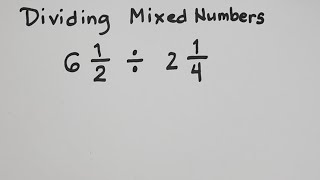 Dividing Mixed Numbers
6 1/2 ÷ 2 1/4